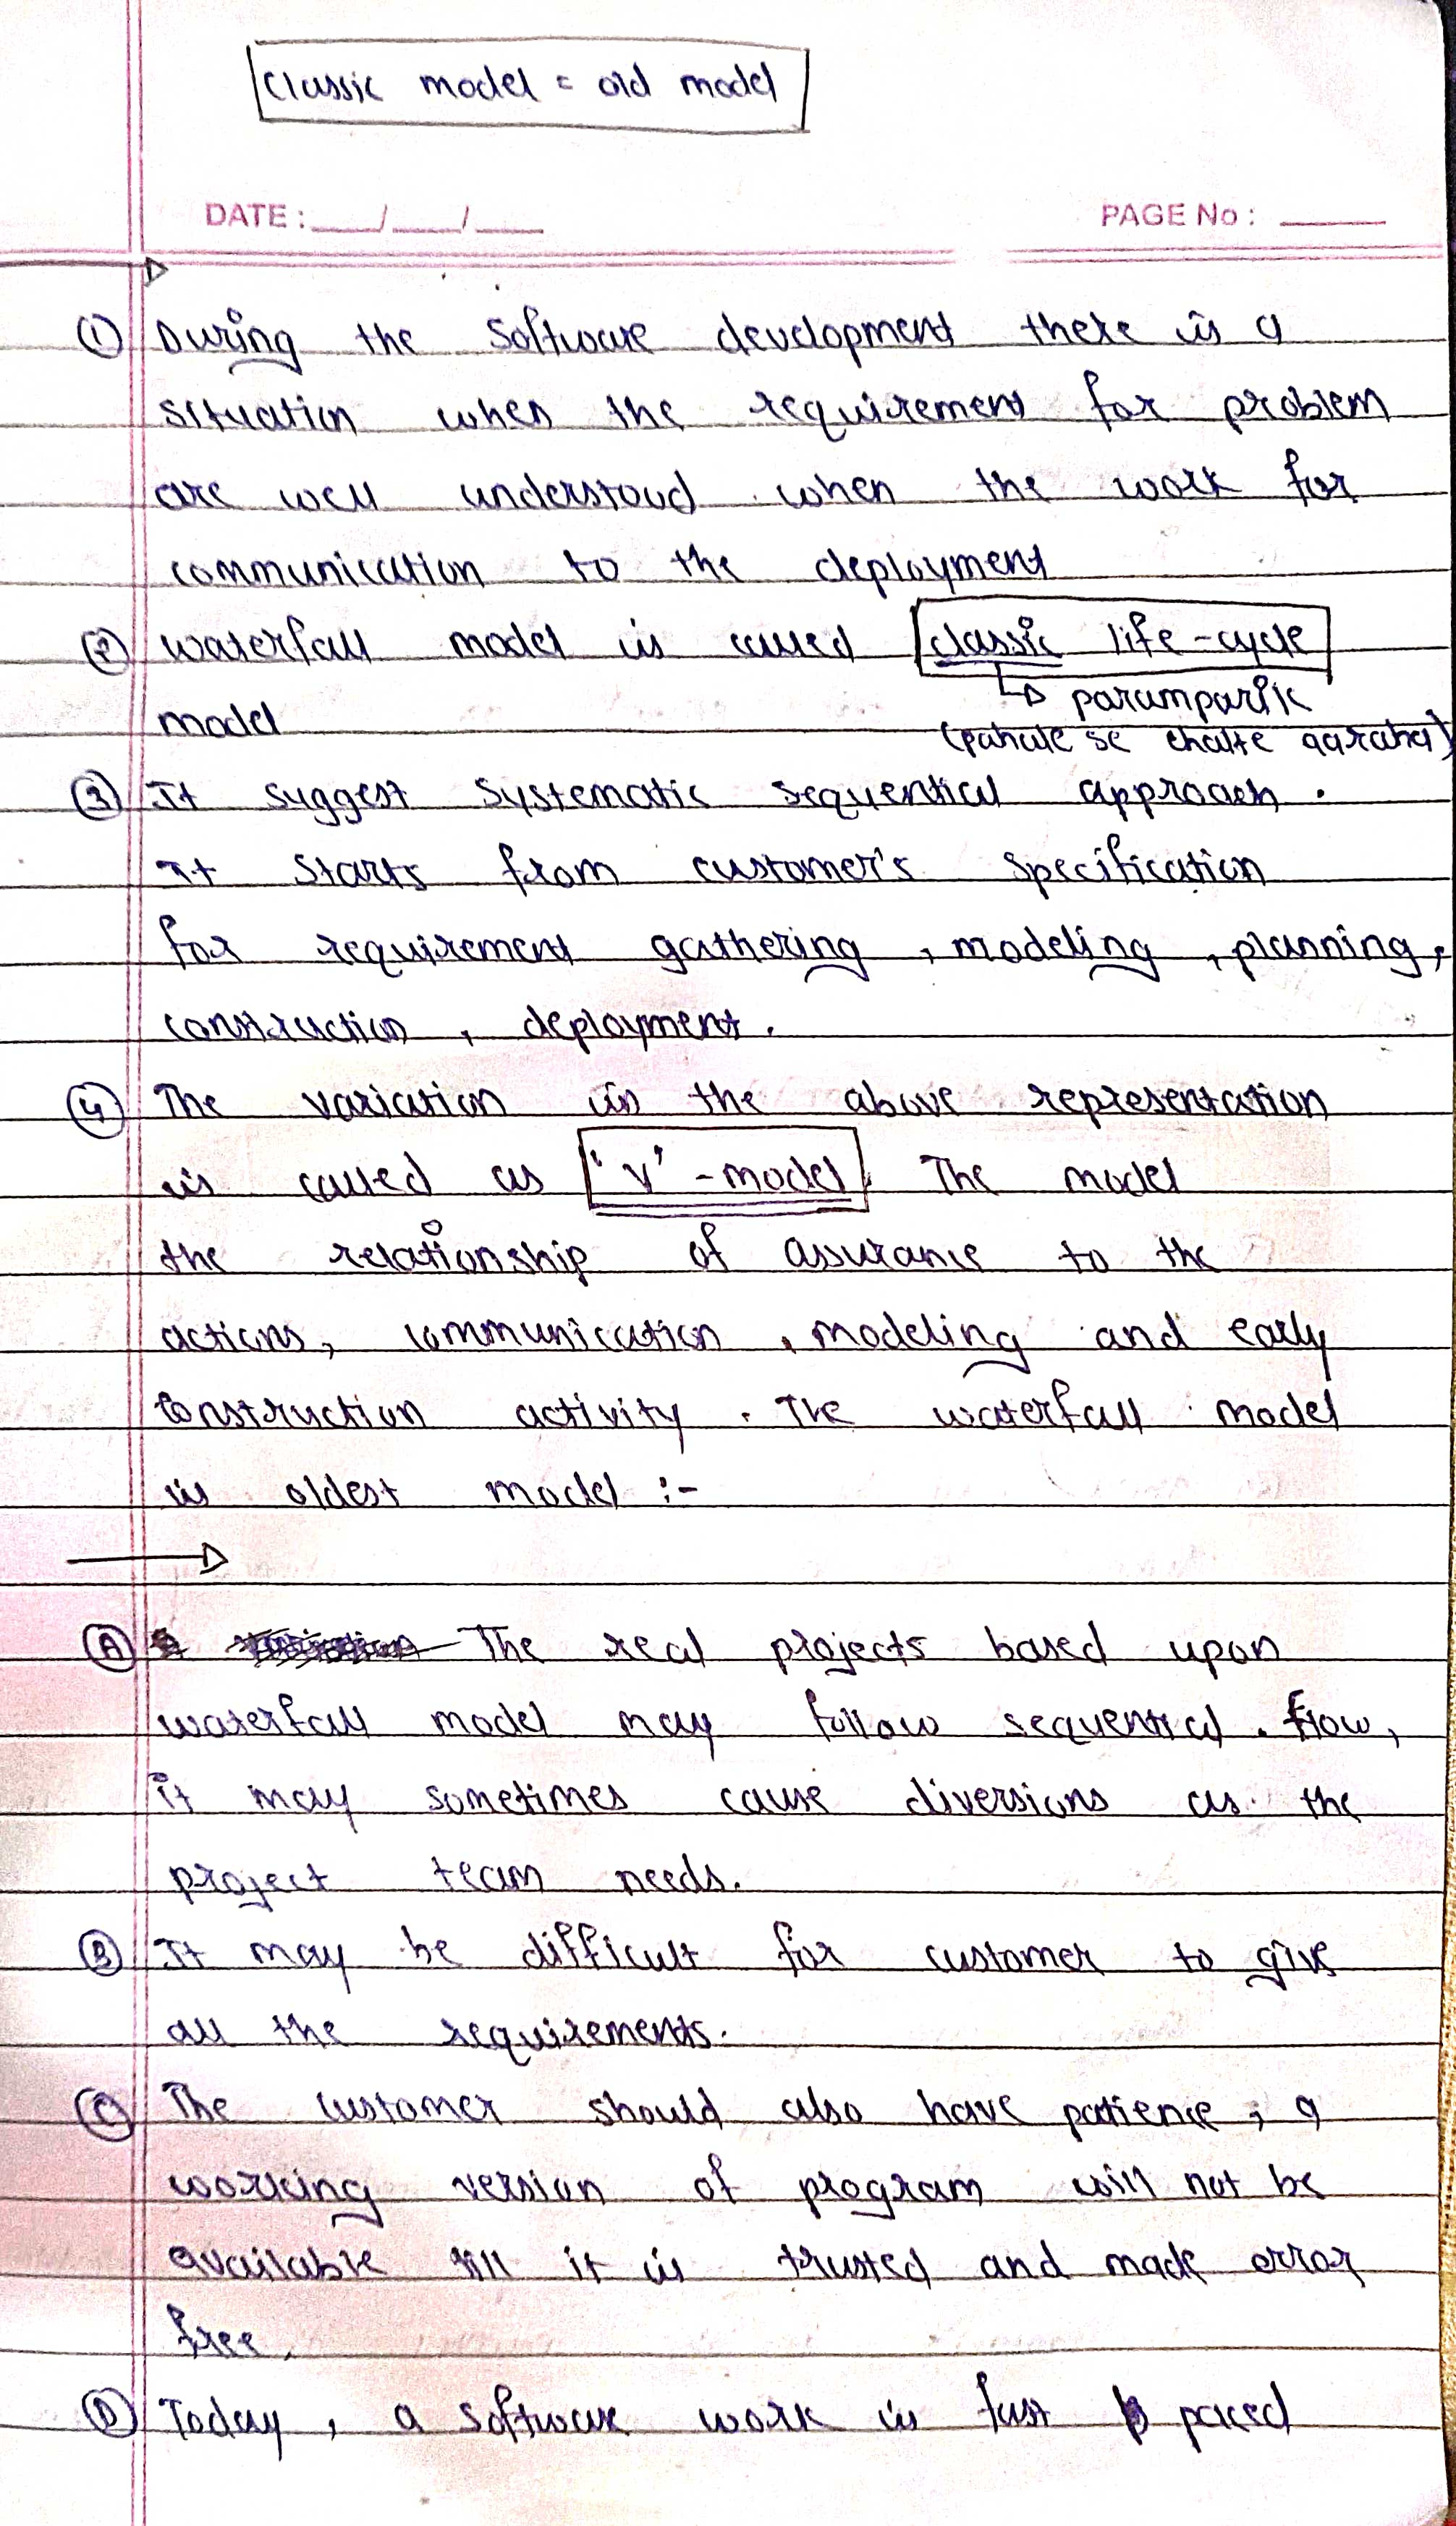 Classic model = old model
DATE: ___/___/___ PAGE No: ___
① During the Software development there is a
situation when the requirement for problem
are well understood when the work for
communication to the deployment
② waterfall model is called classic life-cycle
→ paramparik
model
(pahale se chalte aaraha)
③ It suggest systematic sequential approach.
It starts from customer's specification
for requirement gathering, modeling, planning,
construction, deployment.
④ The variation in the above representation
is called as 'V'-model. The model
the relationship of assurance to the
actions, communication, modeling and early
construction activity. The waterfall model
is oldest model :-
→
Ⓐ The real projects based upon
waterfall model may follow sequential flow,
it may sometimes cause diversions as the
project team needs.
Ⓑ It may be difficult for customer to give
all the requirements.
Ⓒ The customer should also have patience, a
working version of program will not be
available till it is trusted and made error
free.
Ⓓ Today, a software work is fast paced